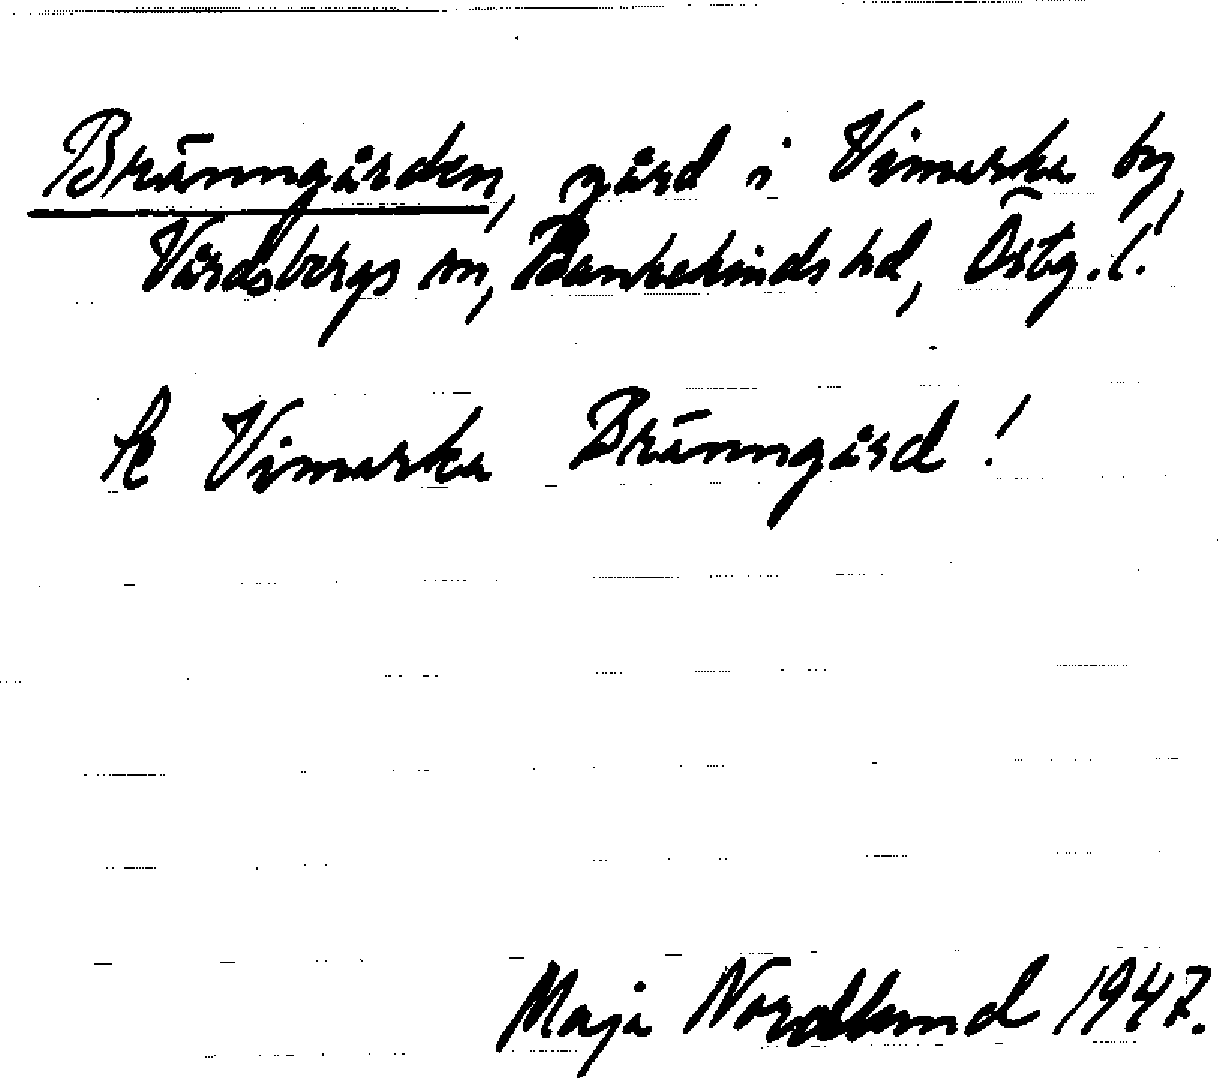 Bränngården, gård i Vimarka by,
Vårdsbergs sn, Bankekinds hd, Östg. l!
Se Vimarka Bränngård!
Maja Nordlund 1947.